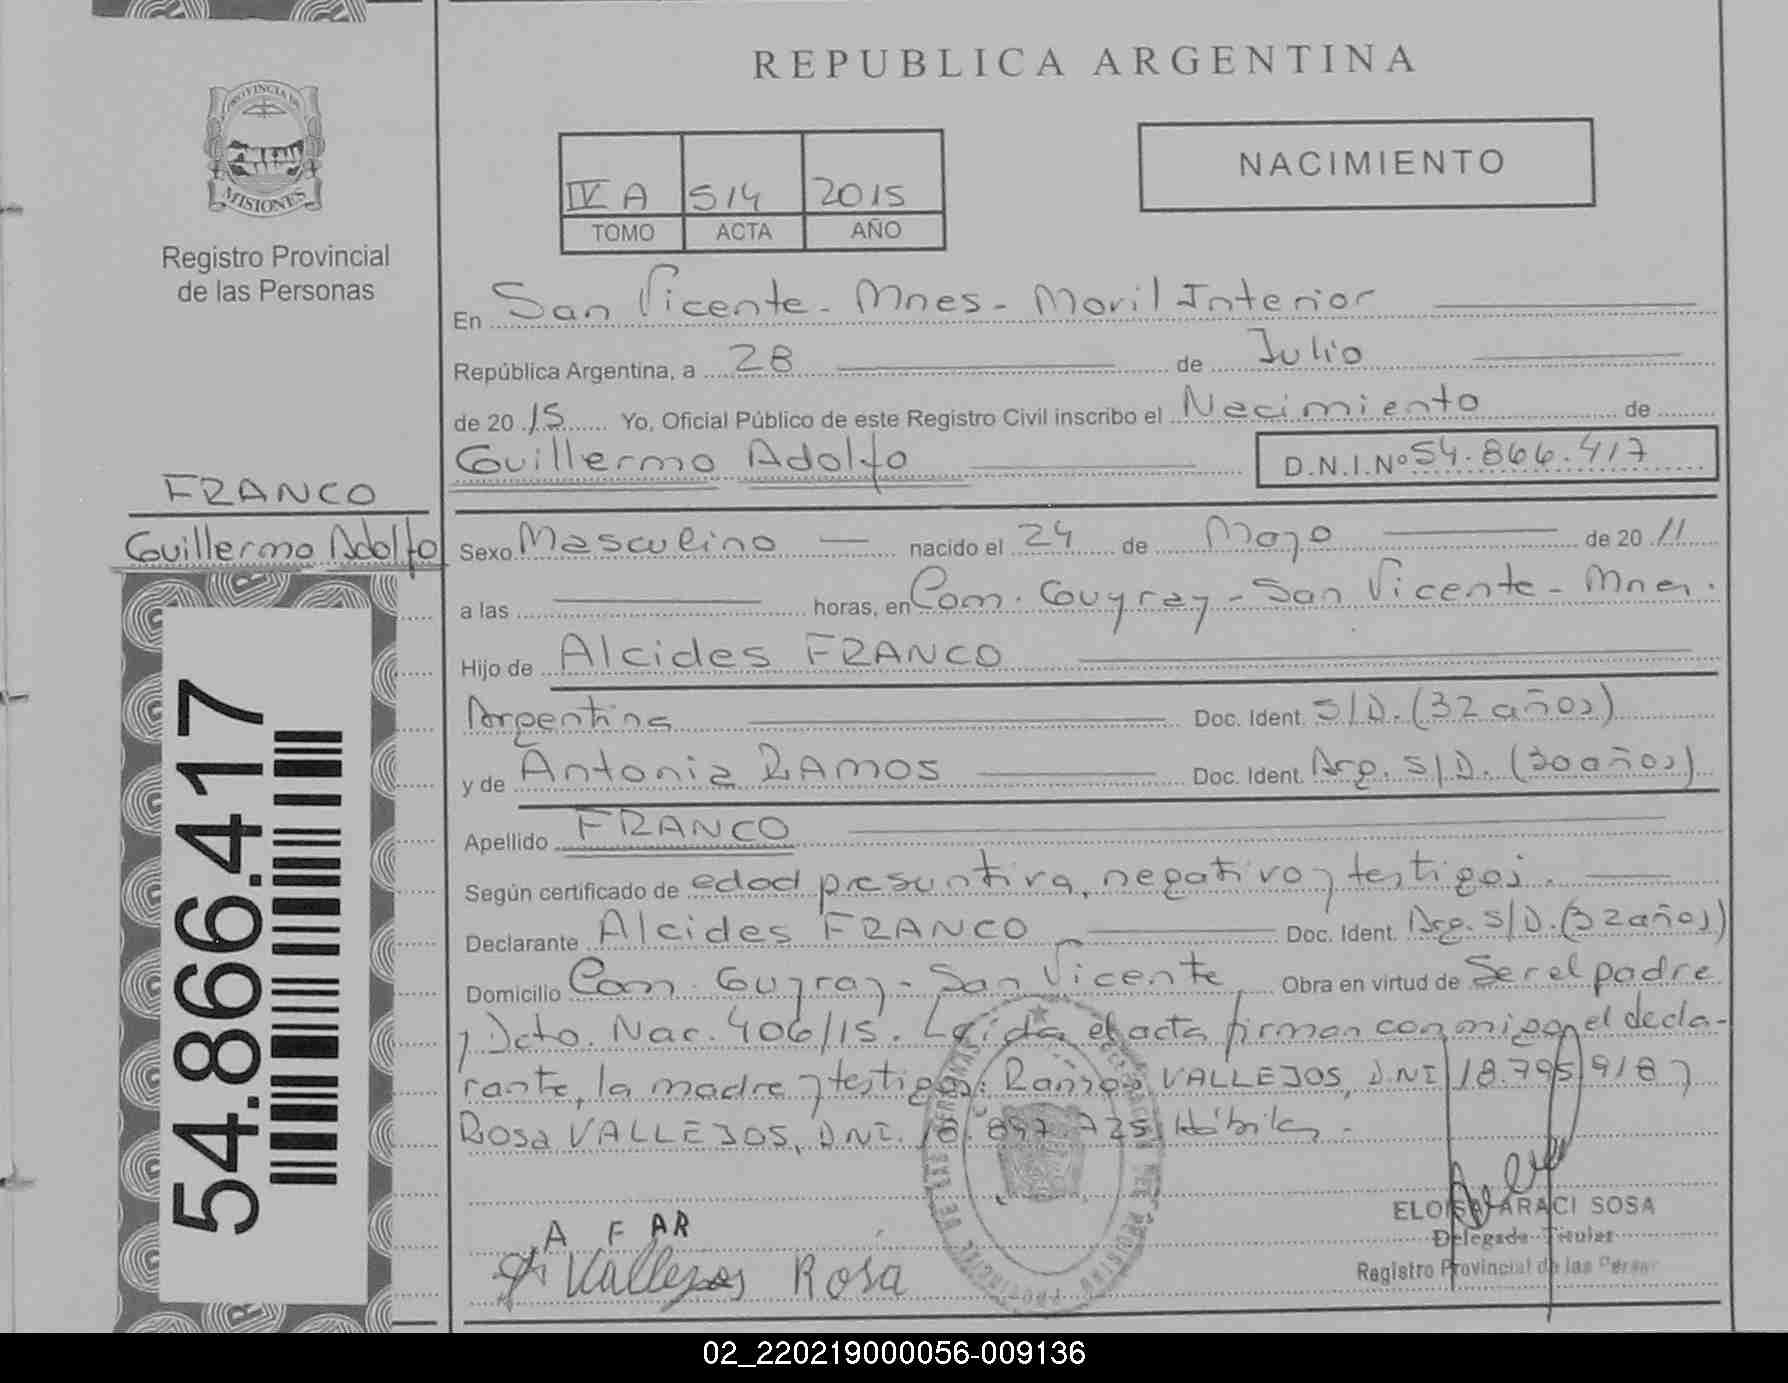 REPUBLICA ARGENTINA
PROVINCIA DE
MISIONES
Registro Provincial
de las Personas
IV A 514 2015
TOMO ACTA AÑO
NACIMIENTO
En San Vicente - Mnes - Movil Interior
República Argentina, a 28 de Julio
de 2015 Yo, Oficial Público de este Registro Civil inscribo el Nacimiento de
Guillermo Adolfo D.N.I.Nº 54.866.417
FRANCO
Guillermo Adolfo
Sexo Masculino nacido el 24 de Mayo de 2011
a las horas, en Com. Guyray - San Vicente - Mnes.
Hijo de Alcides FRANCO
Argentina Doc. Ident. S/D. (32 años)
y de Antonia RAMOS Doc. Ident. Arg. S/D. (30 años)
Apellido FRANCO
Según certificado de edad presuntiva, negativo y testigos.
Declarante Alcides FRANCO Doc. Ident. Arg. S/D. (32 años)
Domicilio Com. Guyray - San Vicente Obra en virtud de Ser el padre
y Dcto. Nac. 406/15. Leida el acta firman conmigo el decla-
rante, la madre y testigos: VALLEJOS, DNI 18.795.918 y
Rosa VALLEJOS, DNI. 18.897.725 Hábiles.-
54.866.417
A F AR
Vallejos Rosa
ELOISA ARACI SOSA
Delegada Titular
Registro Provincial de las Person
02_220219000056-009136